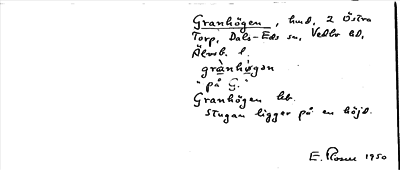 Granhögen, hmd. 2 Östra
Torp, Dals-Eds sn, Vedbo hd,
Älvsb. l.
grànhø̀gən
"på G."
Granhögen leb.
Stugan ligger på en höjd.
E. Rosen 1950